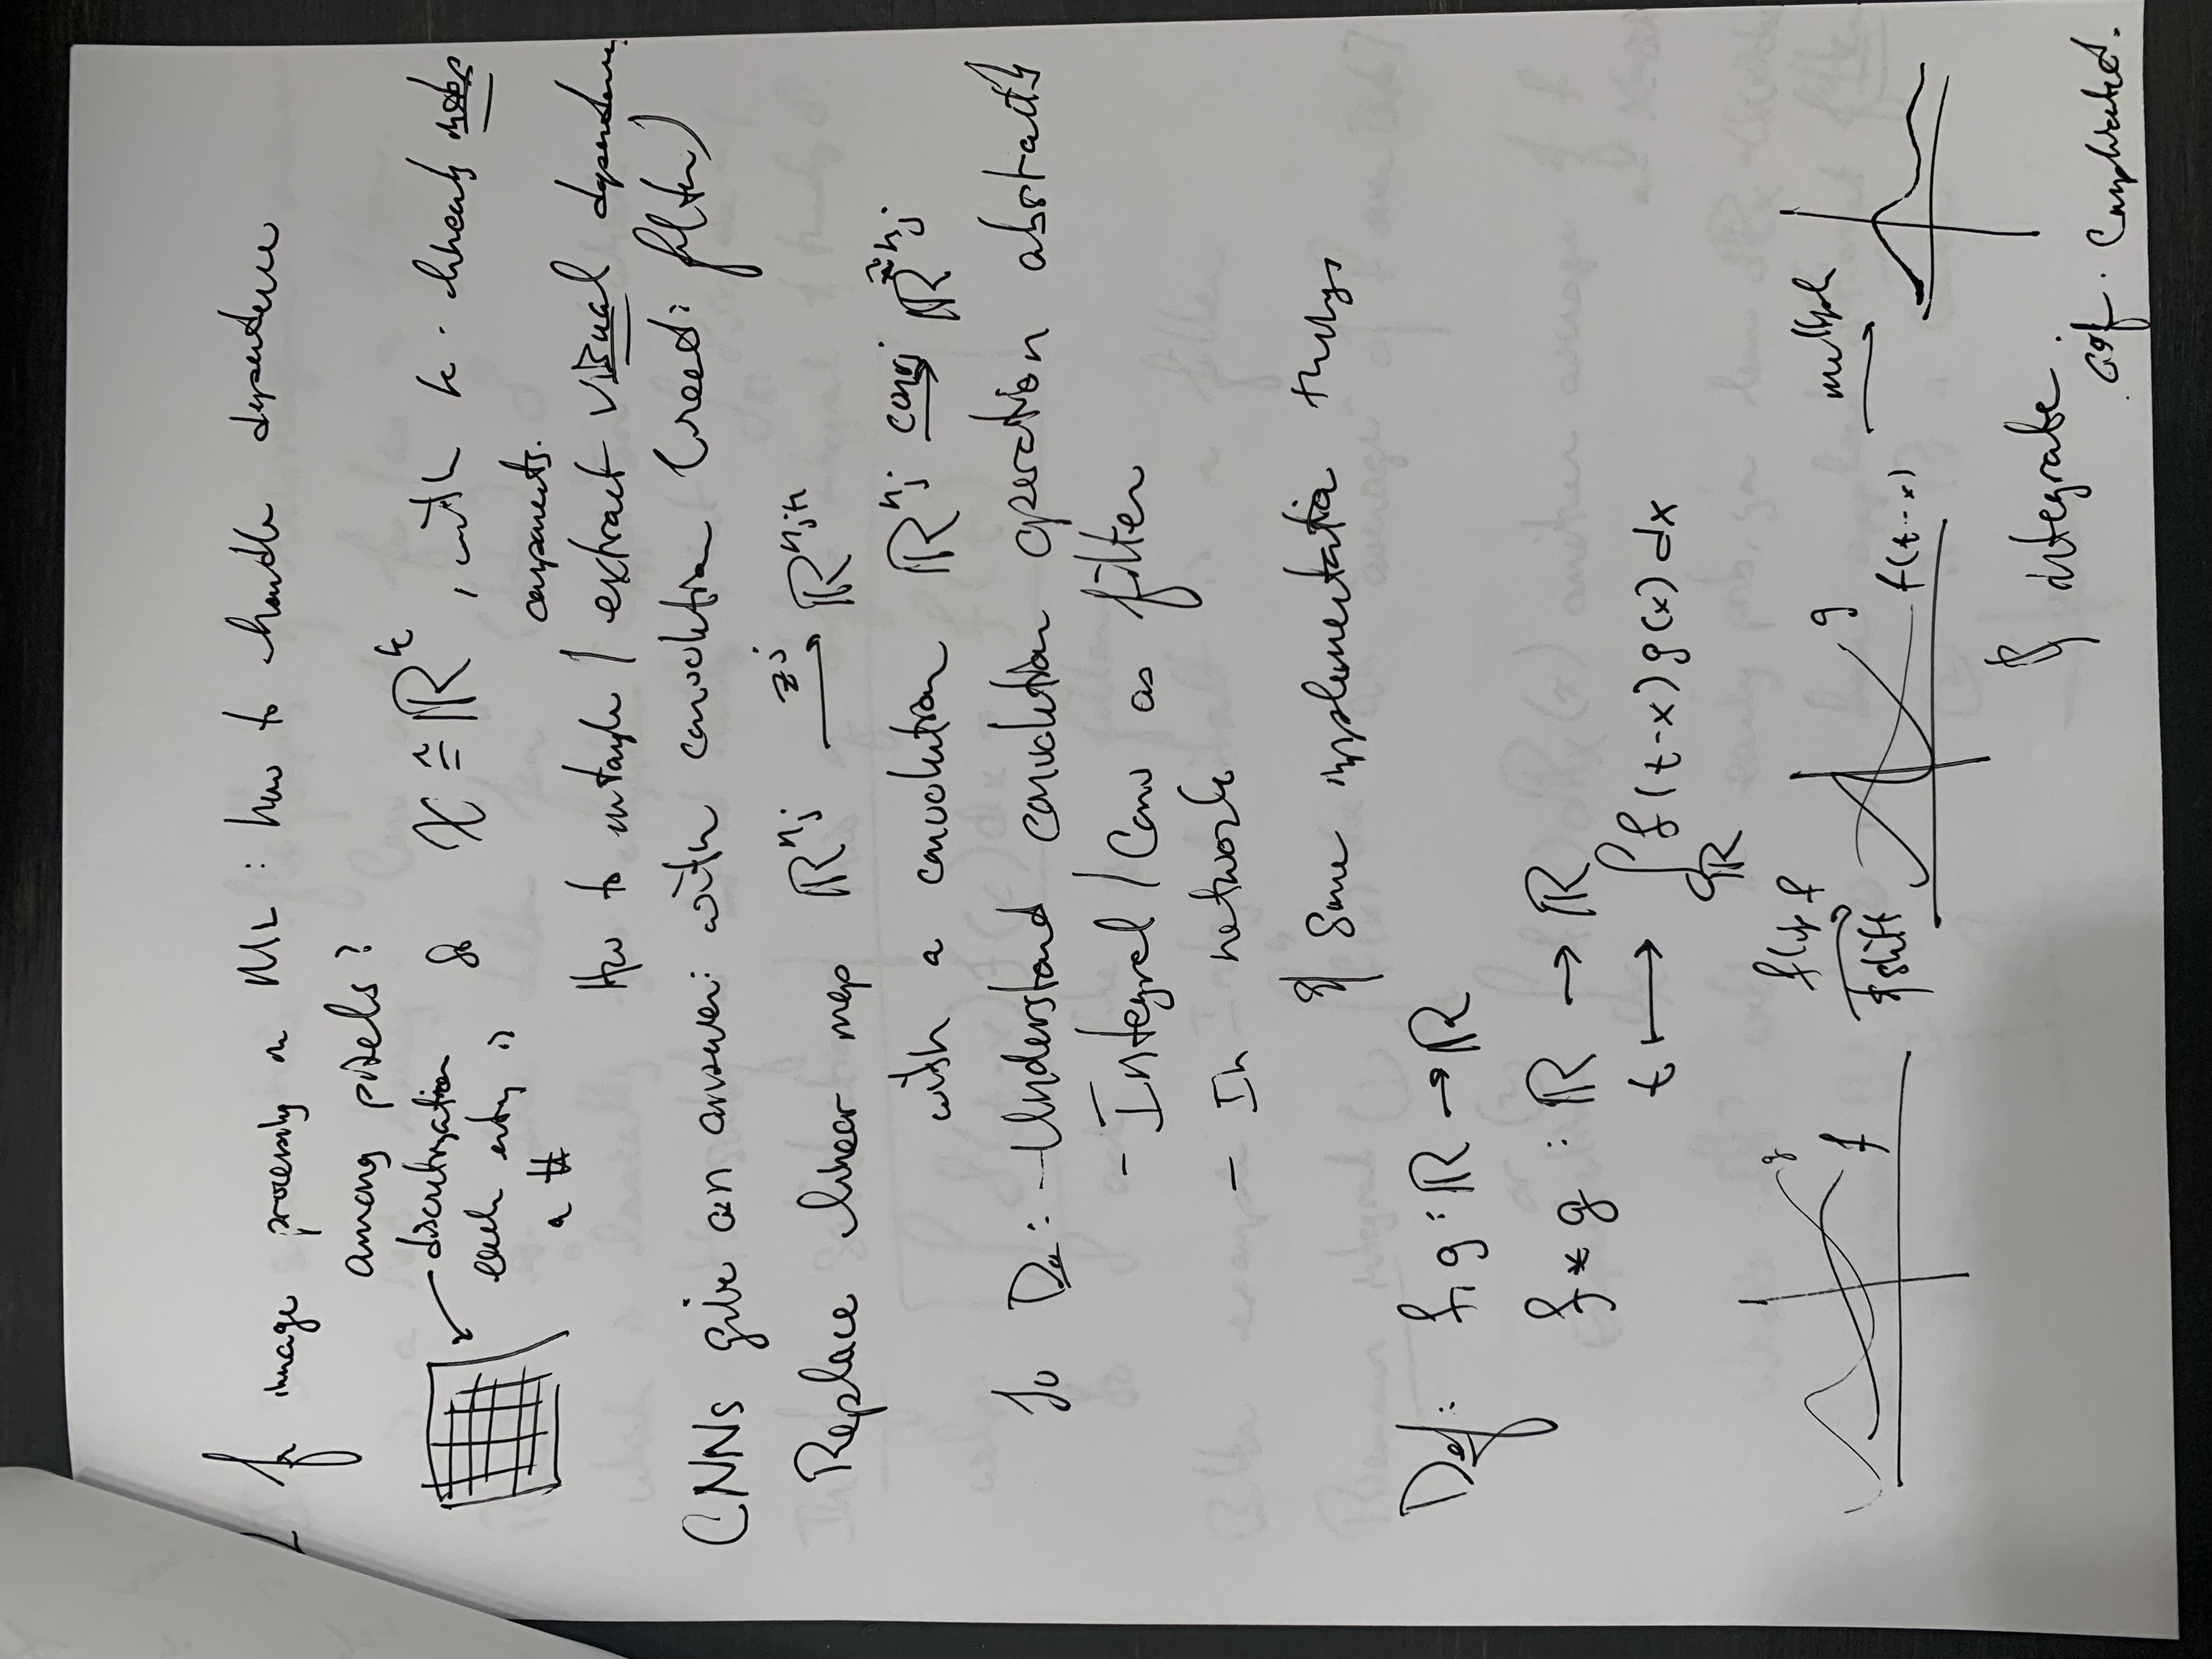 for image processing in ML : how to handle dependence
among pixels?
discretization
each entry is
a #
So X ≅ ℝ^k , with k - linearly indep
components.
How to untangle / extract visual dependence
CNNs give an answer: with convolution (read: filter)
Replace linear map ℝ^{n_j} →^{z^j} ℝ^{n_{j+1}}
with a convolution ℝ^{n_j} →^{conv_j} ℝ^{ñ_j}
To Do: - Understand convolution operation abstractly
- Integral / Conv as filter
- In network
& Some implementation things
Def: f, g : ℝ → ℝ
f * g : ℝ → ℝ
t ⟼ ∫_ℝ f(t-x) g(x) dx
g
f
flip f
& shift
g
f(t-x)
multiply
& integrate.
Complicated.